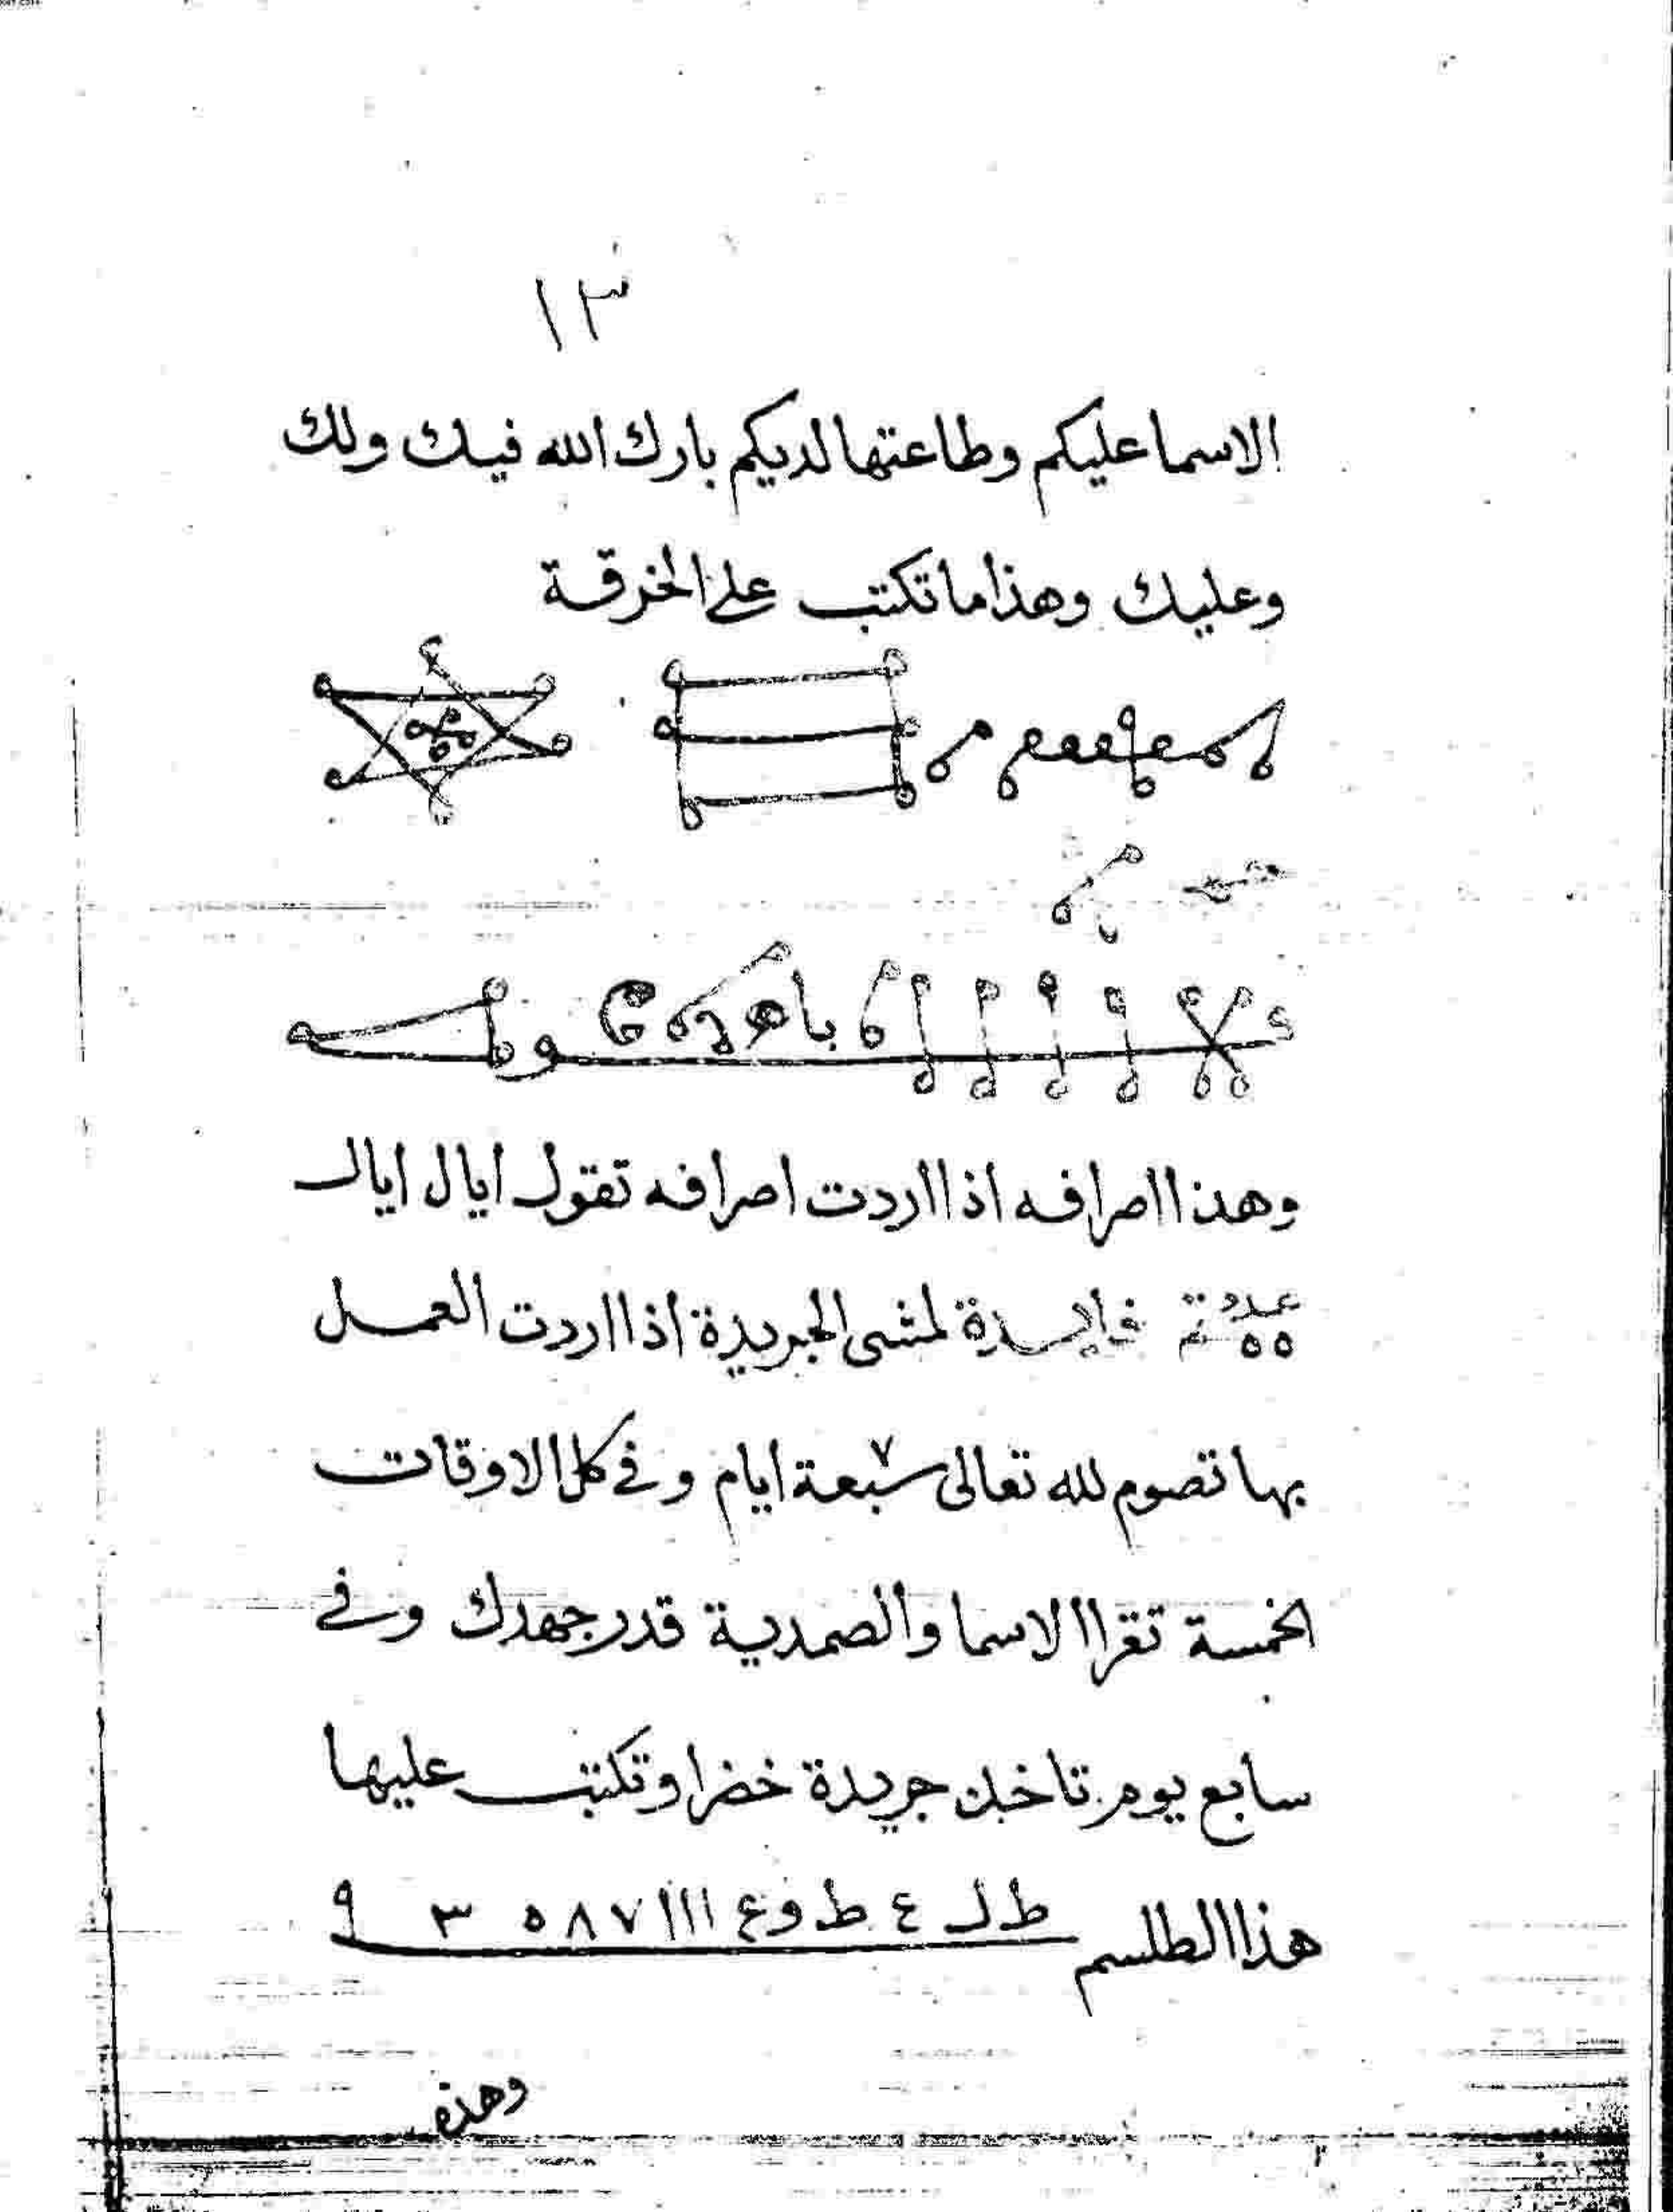 ١٣
الاسما عليكم وطاعتها لديكم بارك الله فيك ولك
وعليك وهذا ما تكتب على الخرقة
وهذا اصرافه اذا اردت اصرافه تقول ايال ايال
عدد ٥٥ تمت فايدة لمشى الجريدة اذا اردت العمل
بها تصوم لله تعالى سبعة ٧ ايام وفي كل الاوقات
الخمسة تقرا الاسما والصمدية قدر جهدك وفي
سابع يوم تاخد جريدة خضرا وتكتب عليها
هذا الطلسم ط ل ٤ ط و ع ١١١ ٧ ٨ ٥ ٣ ٩
وهذه